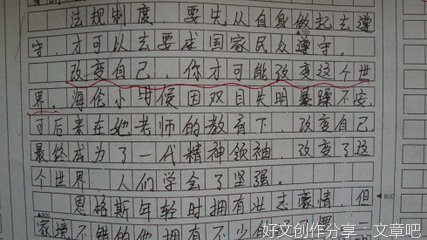 法规制度，要先从自身做起去遵
守，才可以去要求国家民众遵守。
改变自己，你才可能改变这个世
界。海伦小时候因双目失明暴躁不安，
可后来在她老师的教育下，改变自己，
最终成为了一代精神领袖，改变了这
个世界，人们学会了坚强。
800
恩格斯年轻时拥有壮志豪情，但
家境不错的他拥有不少
好文创作分享：文章吧